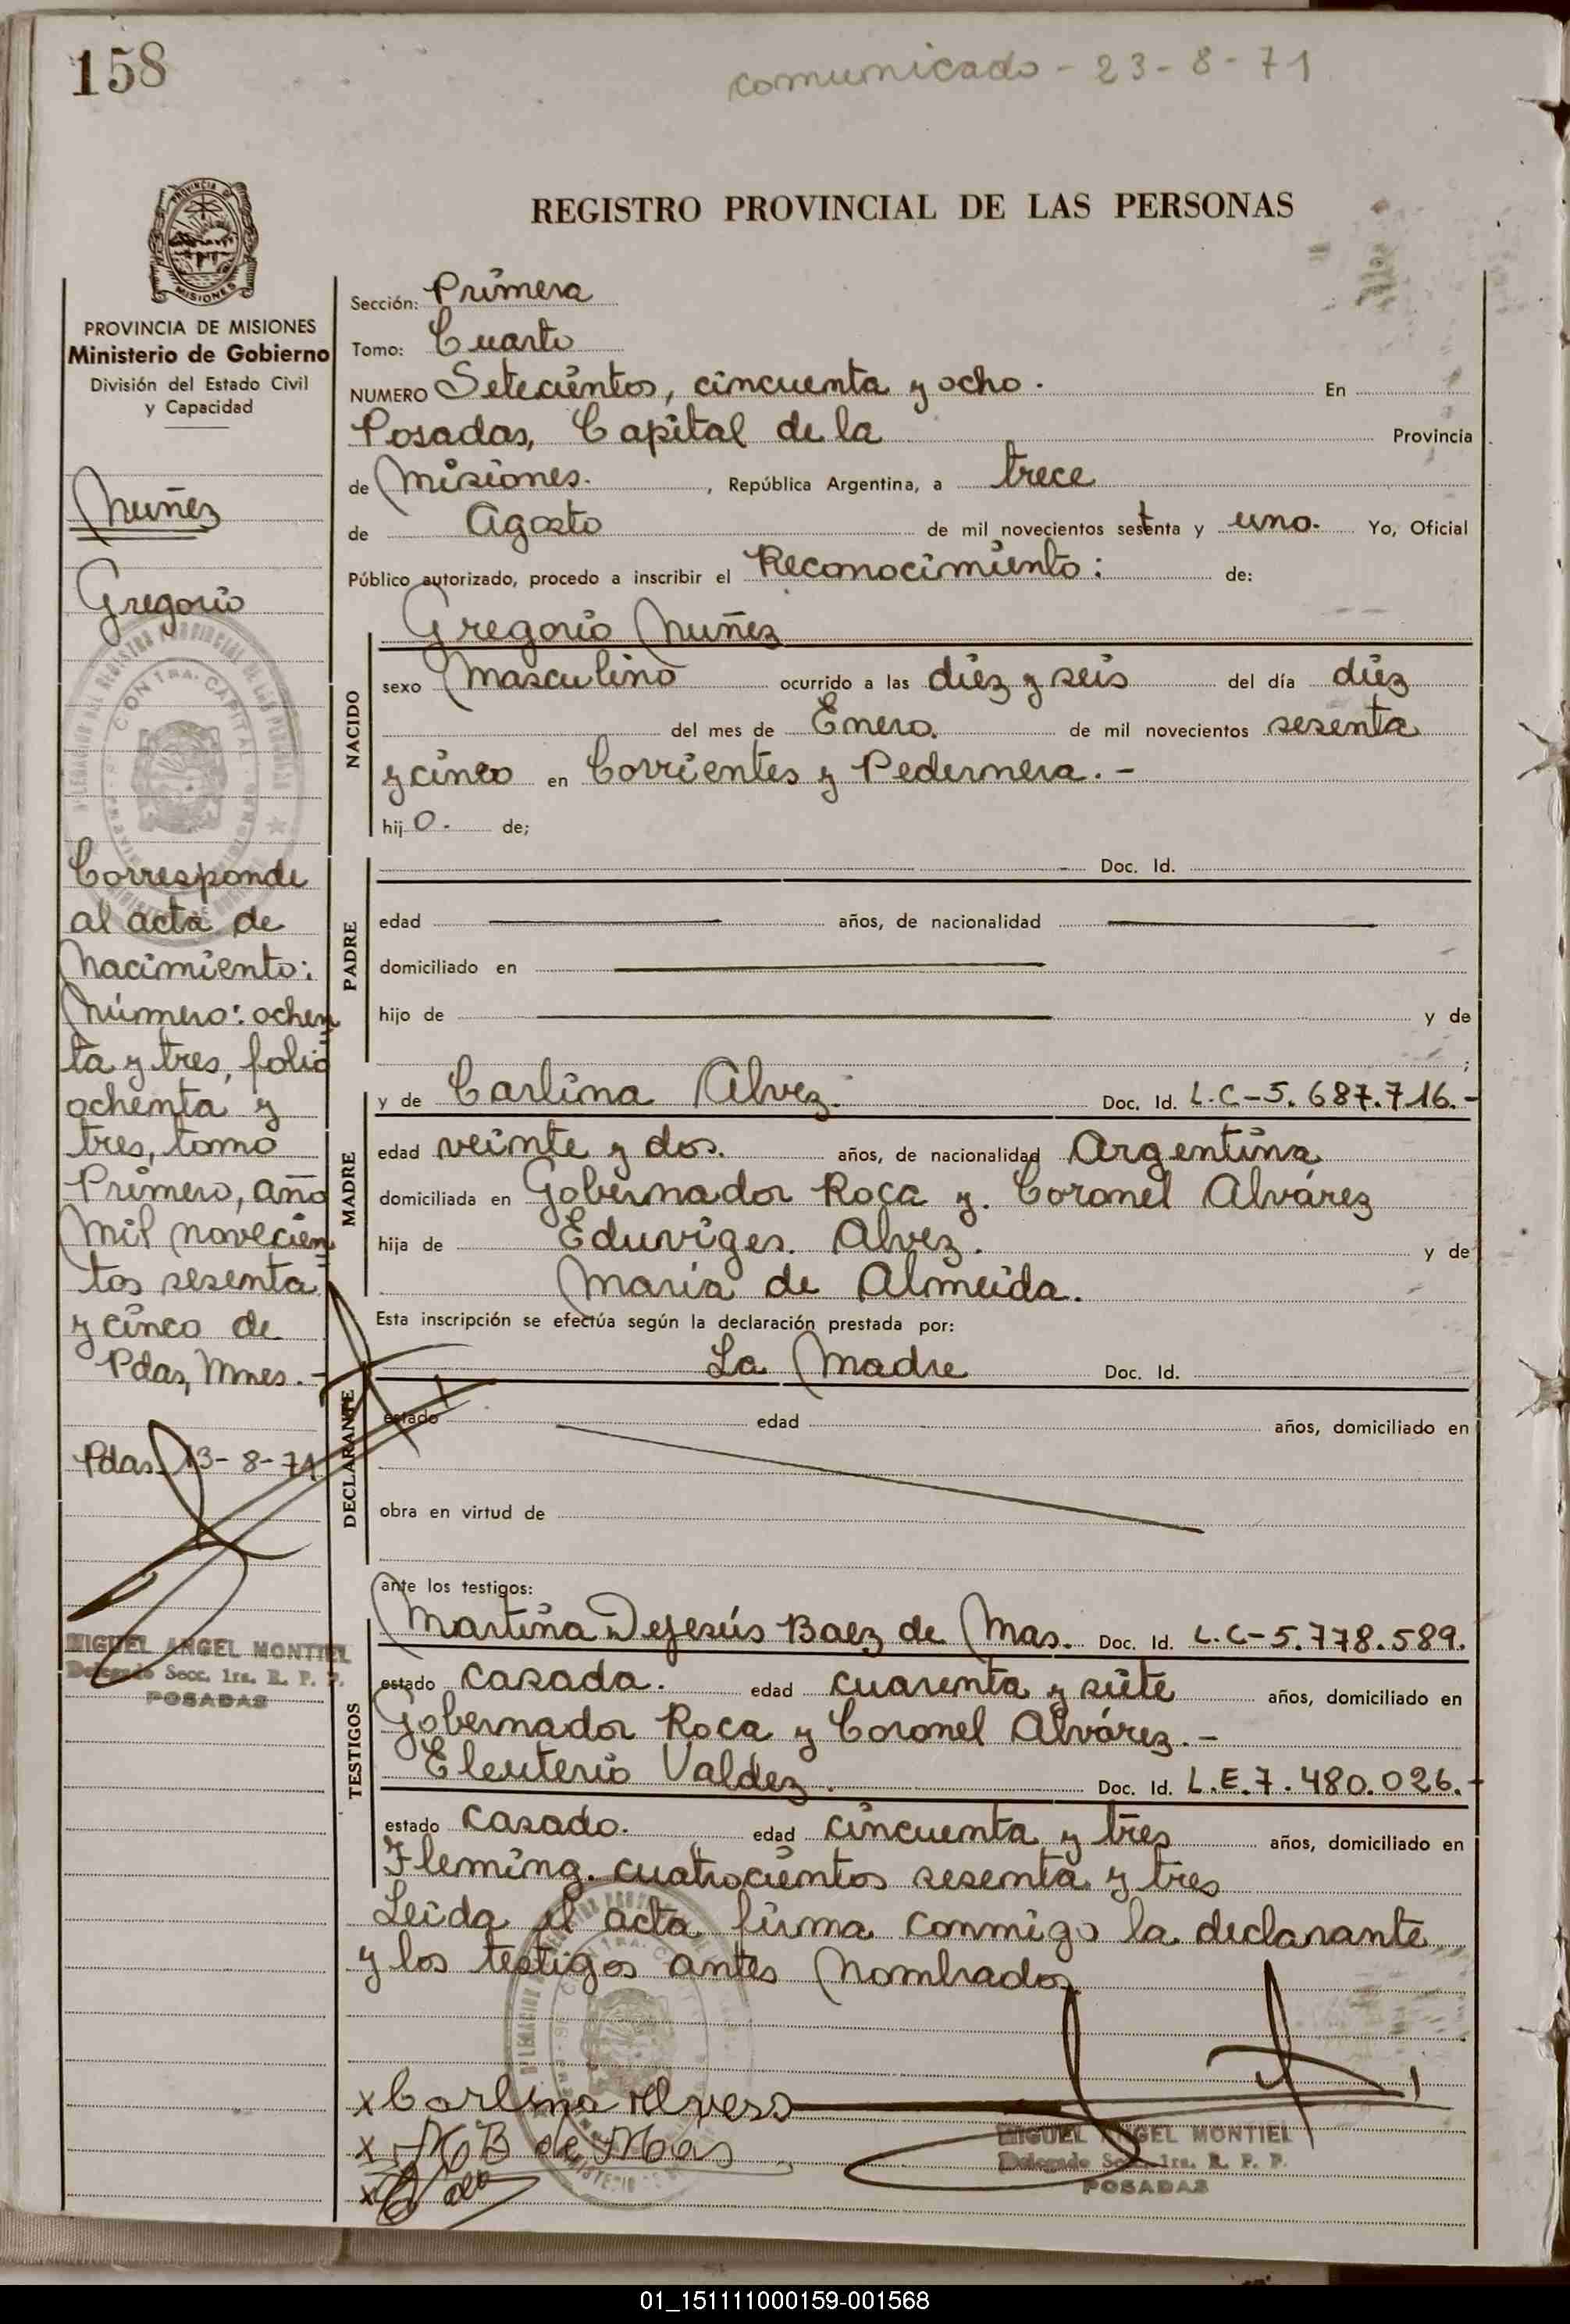 158
comunicado - 23-8-71
REGISTRO PROVINCIAL DE LAS PERSONAS
PROVINCIA DE MISIONES
Ministerio de Gobierno
División del Estado Civil
y Capacidad
Nuñez
Gregorio
Corresponde
al acta de
Nacimiento:
Número: ochen
ta y tres, folio
ochenta y
tres, tomo
Primero, año
Mil novecien
tos sesenta
y cinco de
Pdas, Mnes.-
Pdas. 13-8-71
MIGUEL ANGEL MONTIEL
Delegado Secc. 1ra. R. P. P.
POSADAS
Sección: Primera
Tomo: Cuarto
NUMERO Setecientos, cincuenta y ocho. En
Posadas, Capital de la Provincia
de Misiones. , República Argentina, a trece
de Agosto de mil novecientos setenta y uno. Yo, Oficial
Público autorizado, procedo a inscribir el Reconocimiento: de:
NACIDO
Gregorio Nuñez
sexo Masculino ocurrido a las diez y seis del día diez
del mes de Enero. de mil novecientos sesenta
y cinco en Corrientes y Pedernera.-
hij o. de;
PADRE
Doc. Id.
edad años, de nacionalidad
domiciliado en
hijo de y de
;
MADRE
y de Carlina Alvez. Doc. Id. L.C-5.687.716.-
edad veinte y dos. años, de nacionalidad Argentina
domiciliada en Gobernador Roca y. Coronel Alvárez
hija de Eduviges. Alvez. y de
María de Almeida.
Esta inscripción se efectúa según la declaración prestada por:
DECLARANTE
La Madre Doc. Id.
estado edad años, domiciliado en
obra en virtud de
ante los testigos:
TESTIGOS
Martina Dejesús Baez de Mas. Doc. Id. L.C-5.778.589.
estado casada. edad cuarenta y siete años, domiciliado en
Gobernador Roca y Coronel Alvárez.-
Eleuterio Valdez. Doc. Id. L.E.7.480.026.-
estado casado. edad cincuenta y tres años, domiciliado en
Fleming. cuatrocientos sesenta y tres
Leida el acta firma conmigo la declarante
y los testigos antes Nombrados
x Carlina Alves
x M B de Mas
x
MIGUEL ANGEL MONTIEL
Delegado Secc. 1ra. R. P. P.
POSADAS
01_151111000159-001568